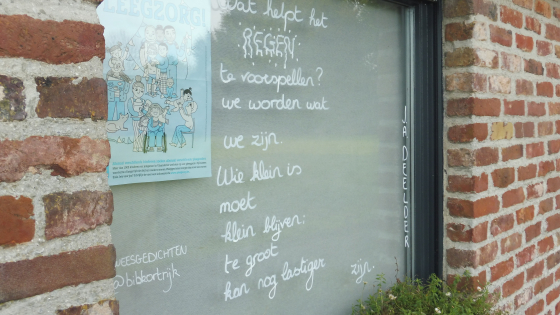 LEEGSORG!
Wat helpt het
REGEN
te voorspellen?
we worden wat
we zijn.
Wie klein is
moet
klein blijven:
te groot
kan nog lastiger zijn.
JA DEELDER
WEESGEDICHTEN
@bibkortrijk